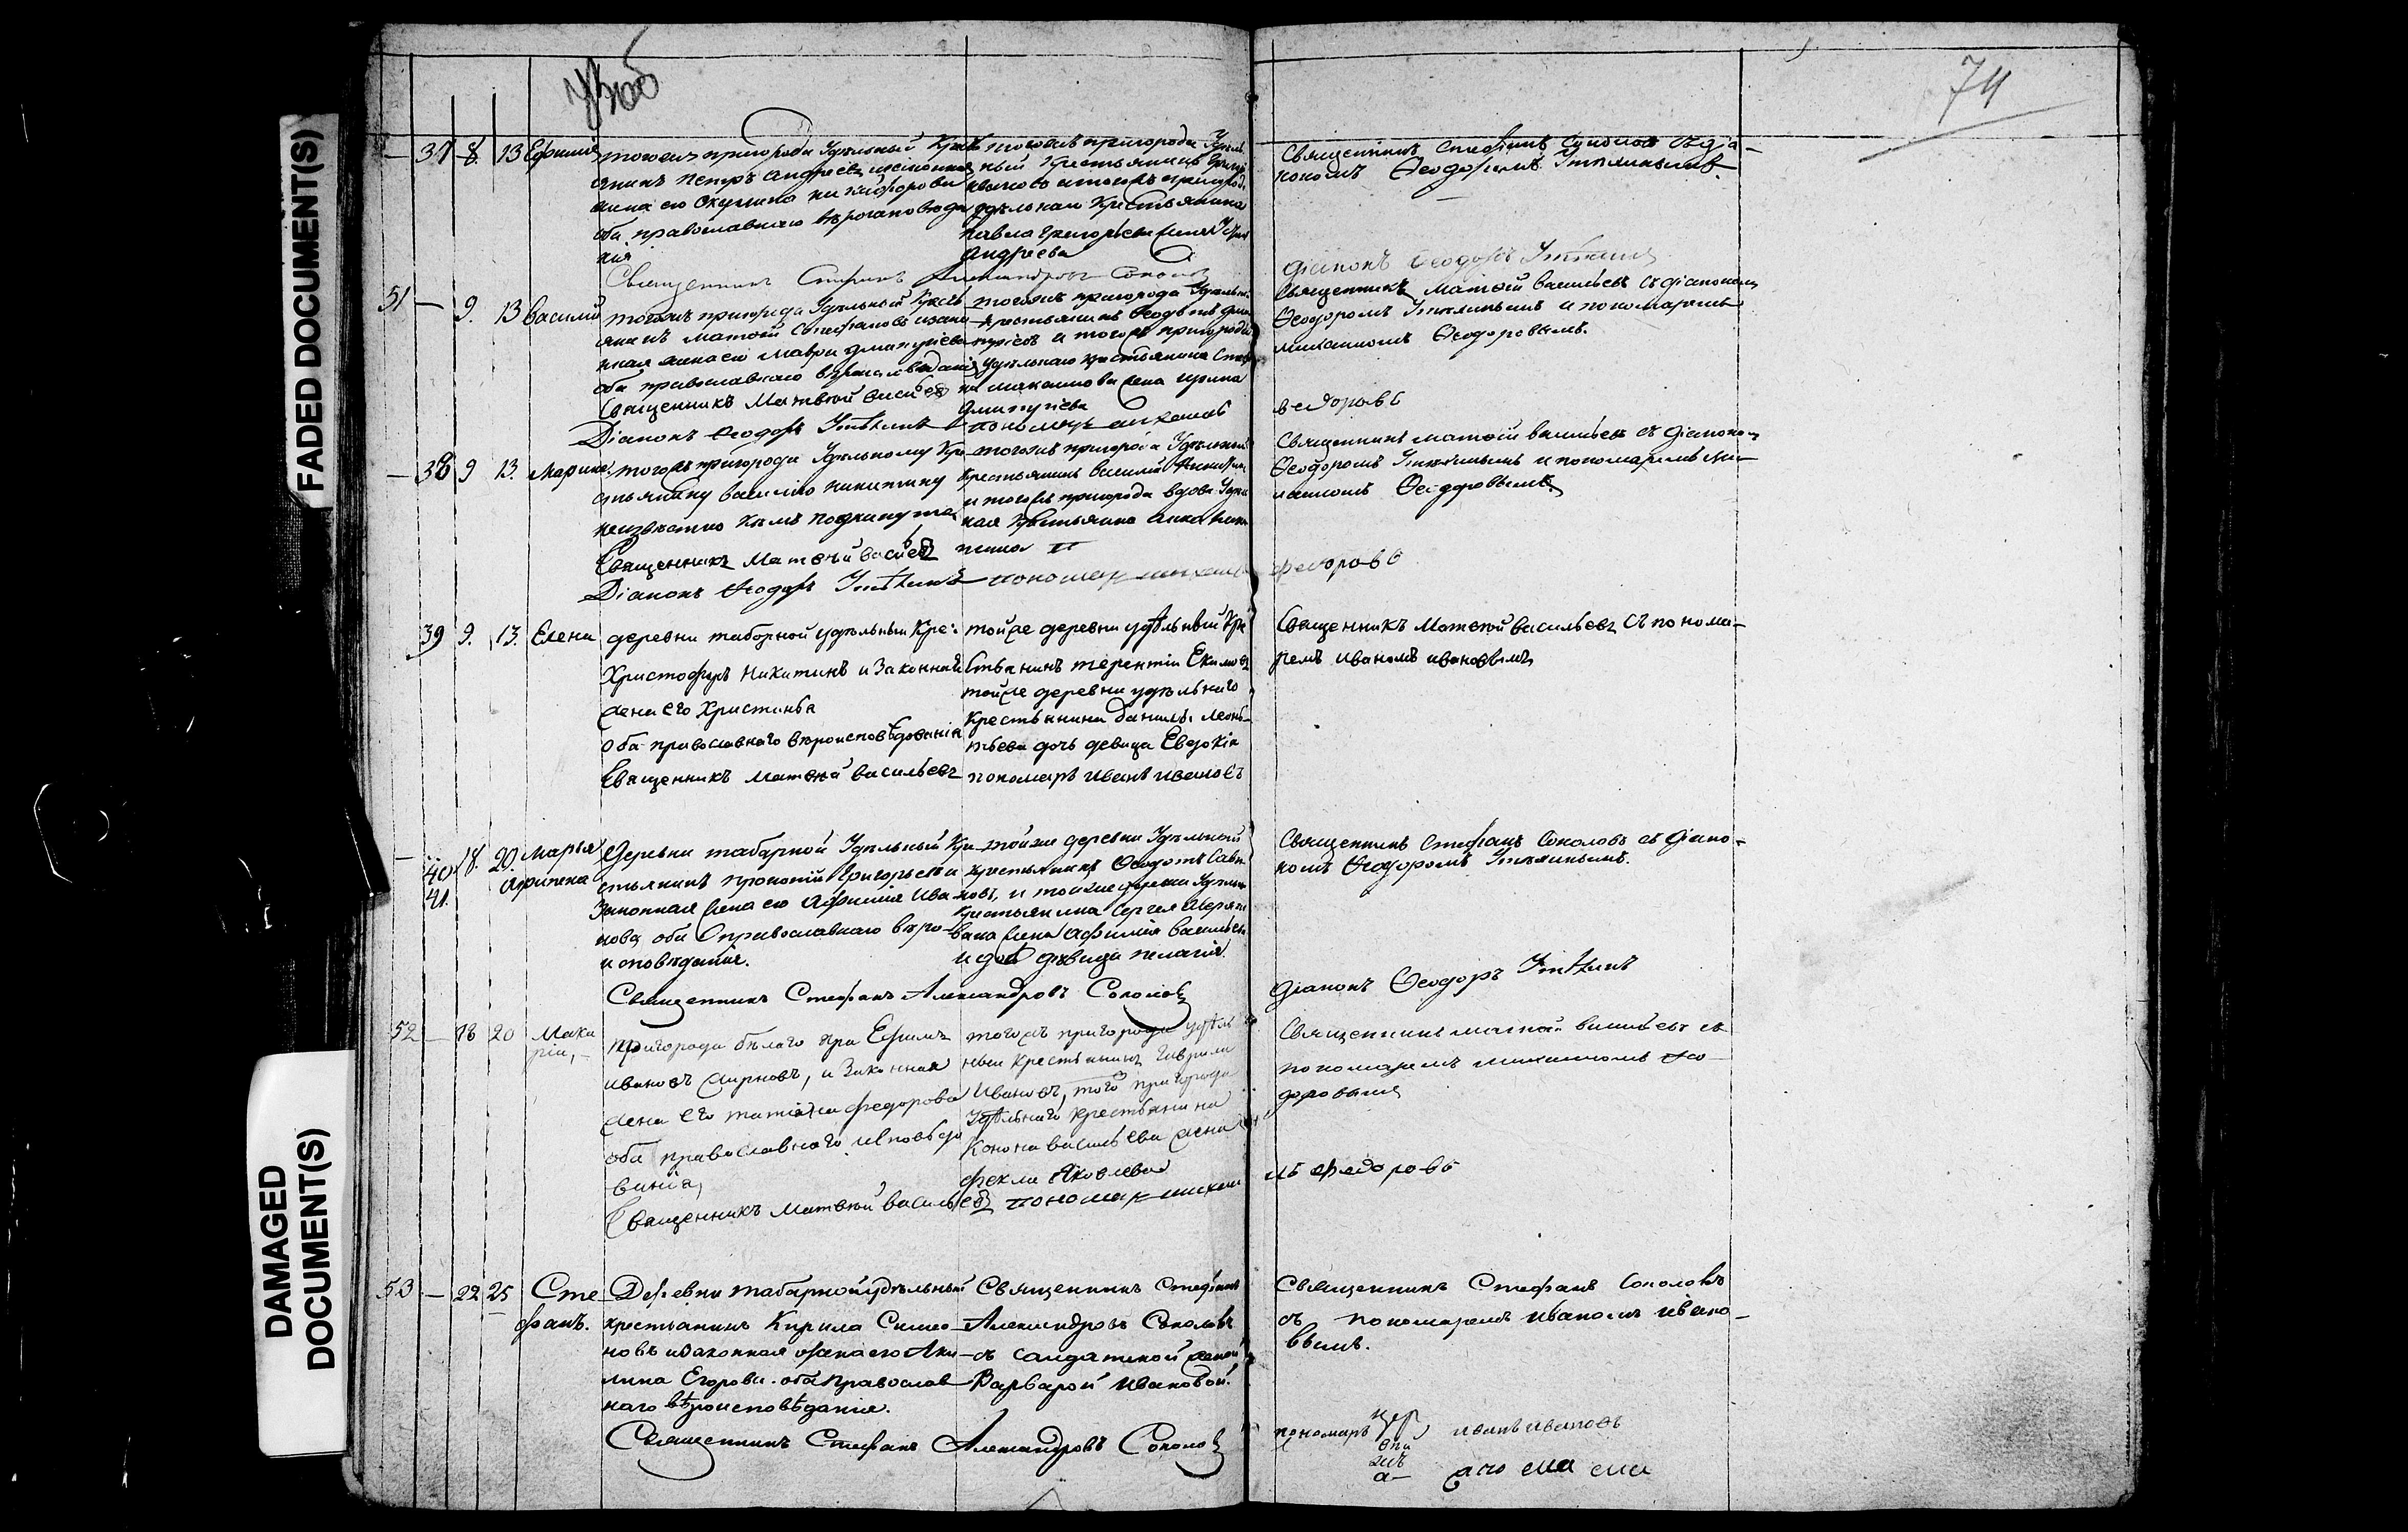 FADED DOCUMENT(S)
DAMAGED DOCUMENT(S)
74
— 37 8. 13 Ефимія
тогожъ пригорода Удѣльный Крестъ
янинъ Петръ Андреевъ изаконная
жена его Никифорова
оба православнаго вѣроисповѣда
нія
Священникъ Стефанъ Александровъ Соколовъ
тогожъ пригорода Удѣль
ный Крестьянинъ
итогожъ пригорода
удѣльнаго Крестьянина
Павла Григорьева жена
Андреева
Священникъ Стефанъ Соколовъ съ діа-
кономъ Ѳеодоромъ
діаконъ Ѳеодоръ
51 — 9. 13 Василий
тогожъ пригорода Удѣльный Кресть
янинъ Матвей Стефановъ изако
нная жена его Мавра Дмитриева
оба православнаго вѣроисповѣданія
Священникъ Матвей Васильевъ
Діаконъ Ѳеодоръ
тогожъ пригорода Удѣльный
Крестьянинъ Ѳедотъ Дми
тріевъ и тогожъ пригорода
удѣльнаго крестьянина
Максимова жена Ирина
Дмитріева
пономарь михаилъ
Священникъ Матвей Васильевъ съ діакономъ
Ѳеодоромъ и пономаремъ
михаиломъ Ѳеодоровымъ.
ѳедоровъ
— 38 9 13. Марина
тогожъ пригорода Удѣльному Кре
стьянину Василию Никитину
неизвѣстно кѣмъ подкинута
Священникъ Матвей Васильевъ
Діаконъ Ѳеодоръ
тогожъ пригорода Удѣльный
Крестьянинъ Василий Никитинъ
и тогожъ пригорода вдова Удѣль
ная Крестьянка Анна Ники
тина
пономарь михаилъ
Священникъ Матвей Васильевъ съ діакономъ
Ѳеодоромъ и пономаремъ Ми-
хаиломъ Ѳеодоровымъ
федоровъ
39 9. 13. Елена
деревни таборной удѣльный Кре:
Христофоръ Никитинъ и Законная
жена его Христинья
оба православнаго вѣроисповѣдованія
Священникъ Матвей Васильевъ
тойже деревни удѣльный Кре
стьянинъ Терентій Екимовъ
тойже деревни удѣльнаго
Крестьянина данилы леонь-
тьева дочь девица Евдокія
пономарь иванъ ивановъ
Священникъ Матвей Васильевъ съ понома-
ремъ Иваномъ ивановымъ
— 40 41. 18. 20. Марья Агрипена
Деревни табарной Удѣльный Кре
стьянинъ Прокопій Григорьевъ и
Законная жена его Афимія Ива
нова, оба православнаго вѣро-
исповѣданія.
Священникъ Стефанъ Александровъ Соколовъ
тойже деревни Удѣльный
крестьянинъ Ѳедотъ Сави
новъ, и тойже деревни Удѣльн
Крестьянина Сергея
жена Афимія Васильева
и дочь дѣвица пелагия.
Священникъ Стефанъ Соколовъ съ діако-
номъ Ѳеодоромъ
діаконъ Ѳеодоръ
52 — 18 20 Мака
рій, —
пригорода бѣлаго Яра Ефимъ
ивановъ Смирновъ, и Законная
жена его татіана федорова
оба православнаго исповѣдо
ванія,
Священникъ Матвей Васильевъ
тогожъ пригорода удѣль
ный Крестьянинъ Гаврила
Ивановъ, того пригорода
Удѣльнаго Крестьянина
Конона васильева жена
фекла Яковлева
пономарь михаи
Священникъ Матвей Васильевъ съ
пономаремъ михаиломъ Ѳео-
доровымъ
лъ федоровъ
53 — 22 25 Сте
фанъ.
Деревни табарной удѣльный
крестьянинъ Кирила Симео-
новъ изаконная жена его Аки-
лина Егорова. оба православ
наго вѣроисповѣданія.
Священникъ Стефанъ Александровъ Соколовъ
Священникъ Стефанъ
Александровъ Соколовъ
съ салдатской женой
Варварой Ивановой.
Священникъ Стефанъ Соколовъ
съ пономаремъ Иваномъ ивано-
вымъ.
пономарь иванъ ивановъ